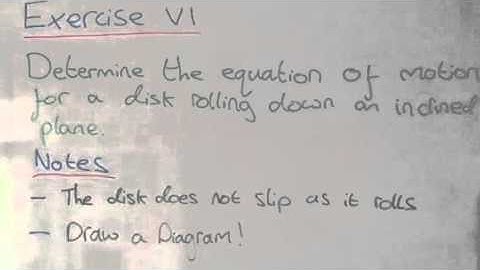 Exercise VI
Determine the equation of motion
for a disk rolling down an inclined
plane.
Notes
- The disk does not slip as it rolls
- Draw a Diagram!